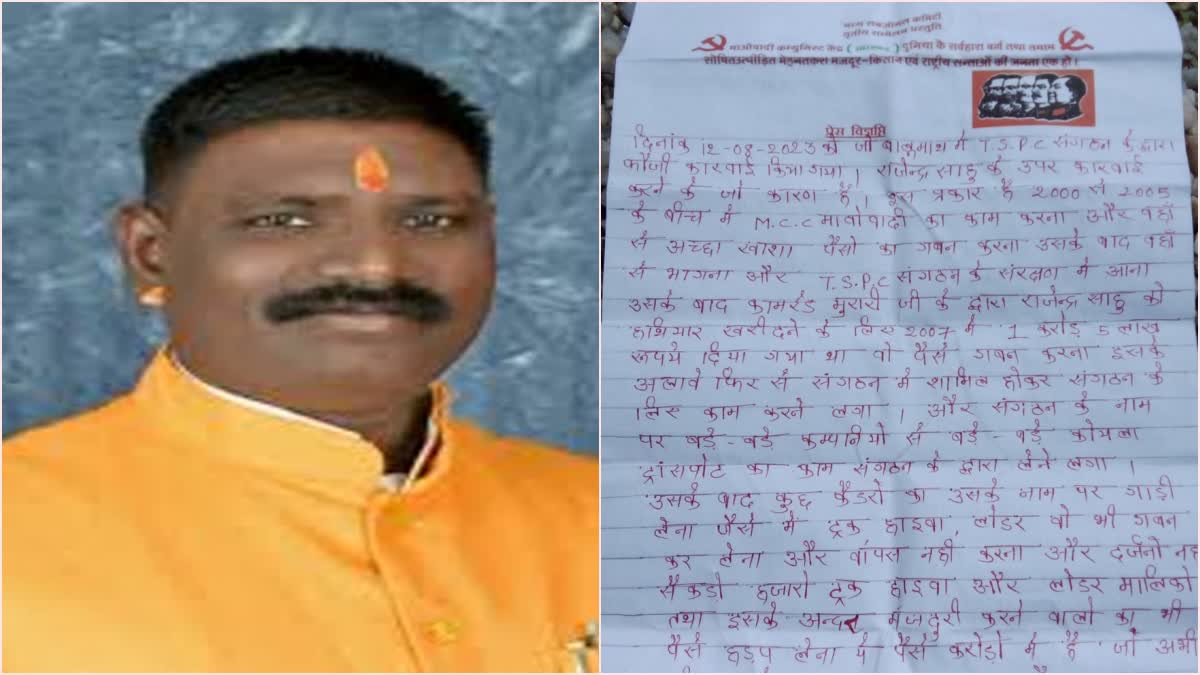 मध्य सबजोनल कमिटी
तृतीय सम्मेलन प्रस्तुति
माओवादी कम्युनिस्ट केंद्र दुनिया के सर्वहारा वर्ग तथा तमाम
शोषितउत्पीड़ित मेहनतकश मजदूर-किसान एवं राष्ट्रीय सत्ताओं की जनता एक हो।
प्रेस विज्ञप्ति
दिनांक 12-08-2023 को जो बालुमाथ में T.S.P.C संगठन के द्वारा
फौजी कारवाई किया गया। राजेन्द्र साहु के उपर कारवाई
करने के जो कारण है। इस प्रकार है 2000 से 2005
के बीच में M.C.C मावोवादी का काम करना और वहाँ
से अच्छा खाशा पैसो का गबन करना उसके बाद वहाँ
से भागना और T.S.P.C संगठन के संरक्षण में आना
उसके बाद कामरेड मुरारी जी के द्वारा राजेन्द्र साहु को
हथियार खरीदने के लिए 2007 में 1 करोड़ 5 लाख
रूपये दिया गया था वो पैसे गबन करना इसके
अलावे फिर से संगठन में शामिल होकर संगठन के
लिए काम करने लगा। और संगठन के नाम
पर बड़े-बड़े कम्पानियो से बड़े-बड़े कोयला
ट्रांसपोट का काम संगठन के द्वारा लेने लगा।
उसके बाद कुछ कैडरो का उसके नाम पर गाड़ी
लेना जैसे में ट्रक हाइवा, लोडर वो भी गबन
कर लेना और वापस नही करना और दर्जनो नही
सैकडो हजारो ट्रक हाइवा और लोडर मालिको
तथा इसके अन्दर मजदुरी करने वालो का भी
पैसे हड़प लेना ये पैसे करोड़ो में है जो अभी